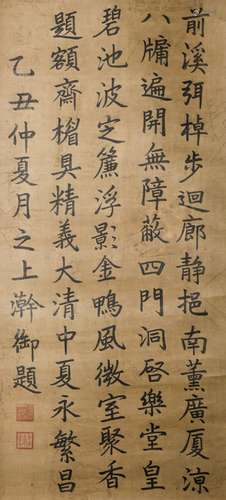 前溪弭棹步迴廊静挹南薰廣厦涼
八牖遍開無障蔽四門洞啓樂堂皇
碧池波定簾浮影金鴨風微室聚香
題額齋楣具精義大清中夏永繁昌
乙丑仲夏月之上澣御題